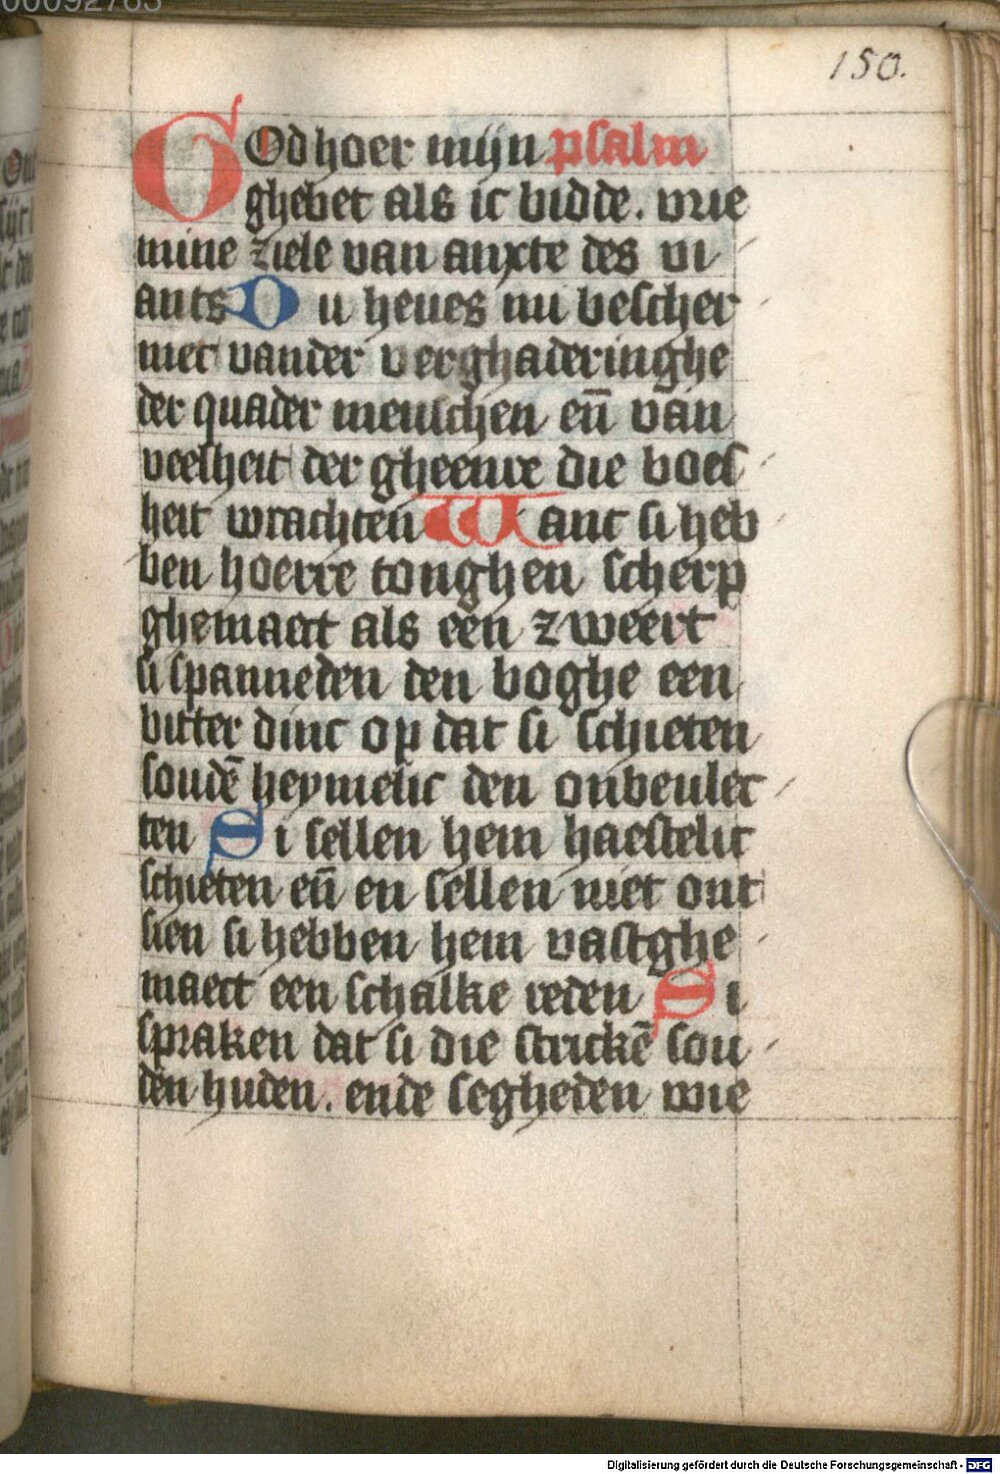 00092763
150.
GOd hoer mijn psalm
ghebet als ic bidde. vrie
mine ziele van anxte des vi
ants Du heues mi bescher
met vander verghaderinghe
der quader menschen en̄ vān
veelheit der gheenre die boes
heit wrachten Want si heb
ben hoerre tonghen scherp
ghemaect als een zweert
si spanneden den boghe een
bitter dinc op dat si schieten
soudē heymelic den onbeulec
ten Si sellen hem haestelic
schieten en̄ en sellen niet ont
sien si hebben hem vastghe
maect een schalke reden Si
spraken dat si die strickē sou
den huden. ende segheden wie
Digitalisierung gefördert durch die Deutsche Forschungsgemeinschaft - DFG